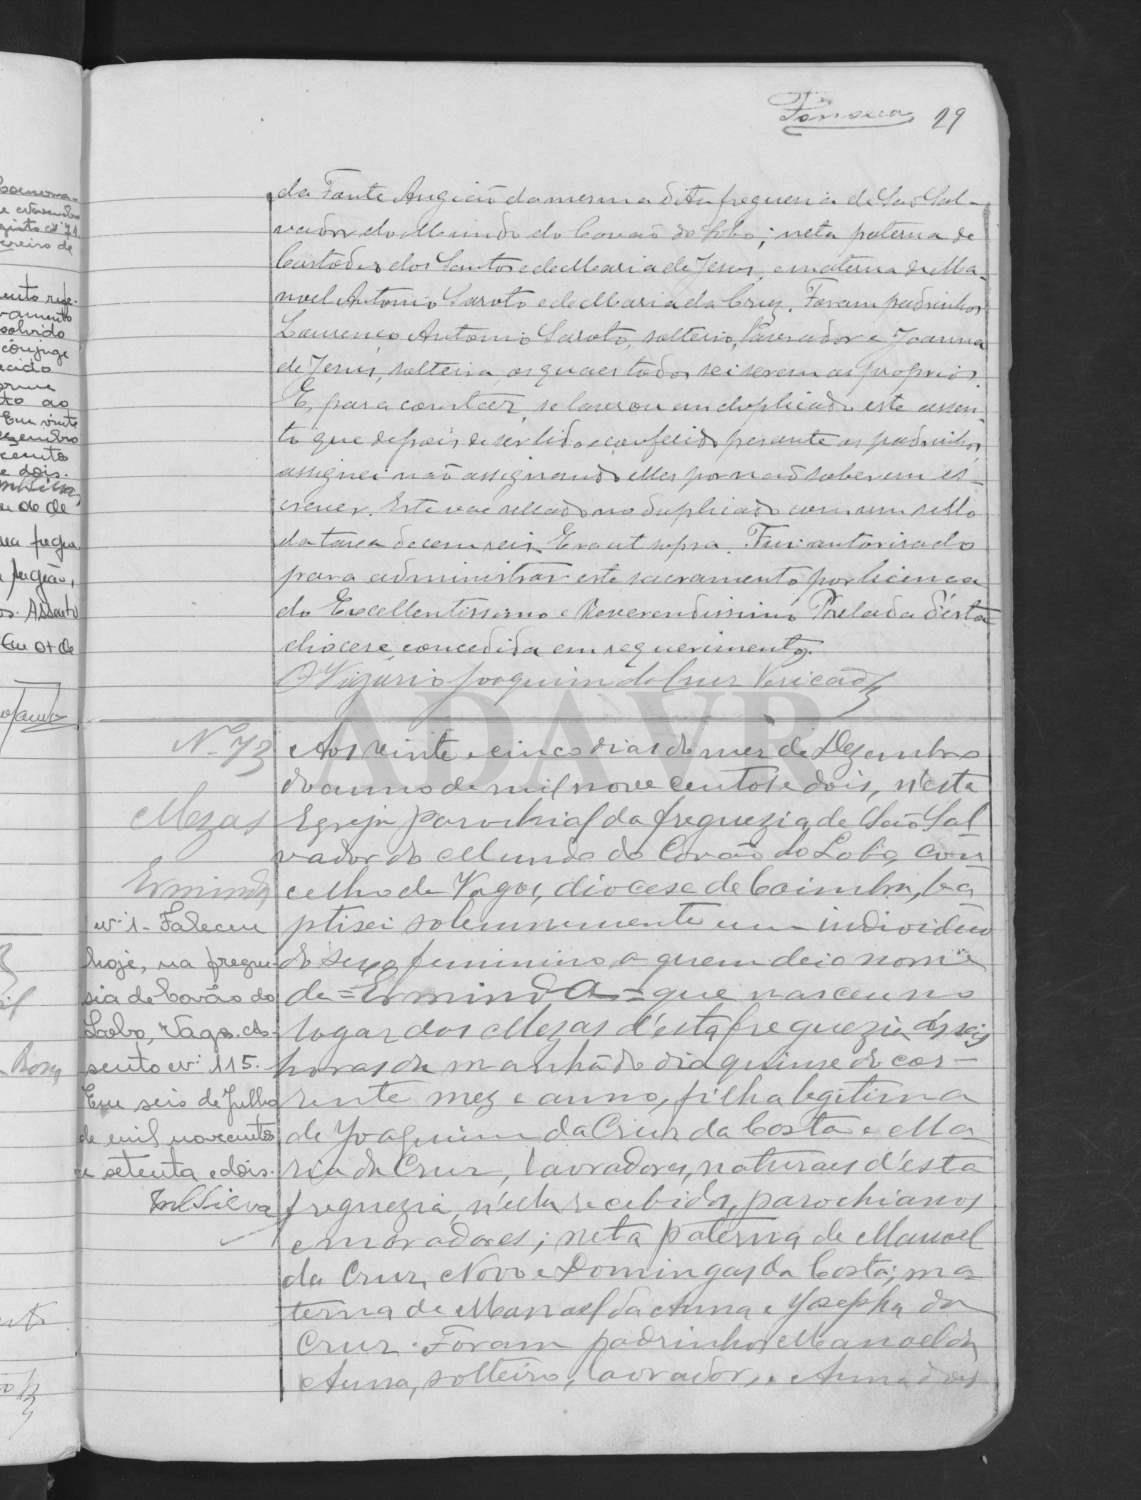 Fonseca 29
da Fonte Angeião da mesma dita freguesia de São Sal-
vador do Mundo do Covão do Lobo; neta paterna de
Custodio dos Santos e de Maria de Jesus, e materna de Ma-
noel Antonio Saroto e de Maria da Cruz. Foram padrinhos
Lourenço Antonio Saroto, solteiro, lavrador e Joanna
de Jesus, solteira, os quaes todos sei serem os proprios.
E, para constar, se lavrou em duplicado este assen-
to que depois de ser lido e conferido perante os padrinhos,
assignei não assignando elles por não saberem es-
crever. Este vae sellado no duplicado com um sello
da taxa de cem reis. Era ut supra. Fui autorisado
para administrar este sacramento por licença
do Excellentissimo e Reverendissimo Prelado d'esta
diocese, concedida em requerimento.
O Vigario Joaquim da Cruz
Nº 73
Mezas
Erminda
nº 1- Faleceu
hoje, na fregue-
sia de Covão do
Lobo, Vagos. As-
sento nº 115.
Em seis de Julho
de mil novecentos
e setenta e dois.
MSilva
Aos vinte e cinco dias do mez de Dezembro
do anno de mil nove centos e dois, n'esta
Egreja parochial da freguezia de São Sal
vador do Mundo do Covão do Lobo, con
celho de Vagos, diocese de Coimbra, ba
ptisei solemnemente um individuo
do sexo feminino a quem dei o nome
de = Erminda = que nasceu no
logar das Mezas d'esta freguezia ás seis
horas da manhã do dia quinze do cor-
rente mez e anno, filha legitima
de Joaquim da Cruz da Costa e Ma
ria da Cruz, lavradores, naturaes d'esta
freguezia, n'ella recebidos, parochianos
e moradores; neta paterna de Manoel
da Cruz Novo e Domingas da Costa; ma
terna de Manoel da Anna e Josepha da
Cruz. Foram padrinhos Manoel da
Anna, solteiro, lavrador, e Anna das
ADAVR